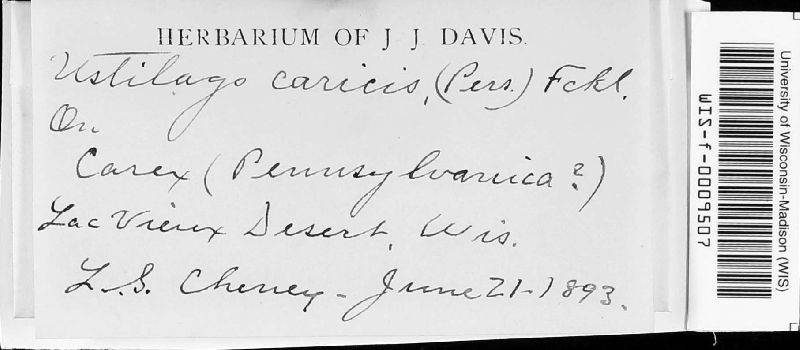 HERBARIUM OF J J DAVIS.
Ustilago caricis, (Pers.) Fckl.
On
Carex (Pennsylvanica?)
Lac Vieux Desert, Wis.
L. S. Cheney - June 21-1893.
University of Wisconsin-Madison (WIS)
WIS-f-0009507